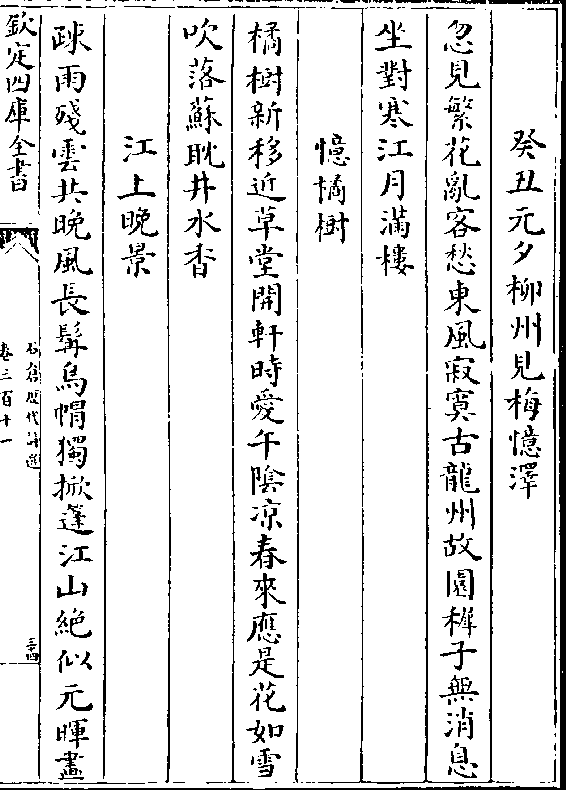 癸丑元夕柳州見梅憶澤
忽見繁花亂客愁東風寂寞古龍州故園稚子無消息
坐對寒江月滿樓
憶橘樹
橘樹新移近草堂開軒時愛午陰凉春來應是花如雪
吹落蘇耽井水香
江上晩景
疎雨殘雲共晩風長髯烏帽獨掀蓬江山絶似元暉畫
欽定四庫全書
石倉歴代詩選
卷三百十一
三四